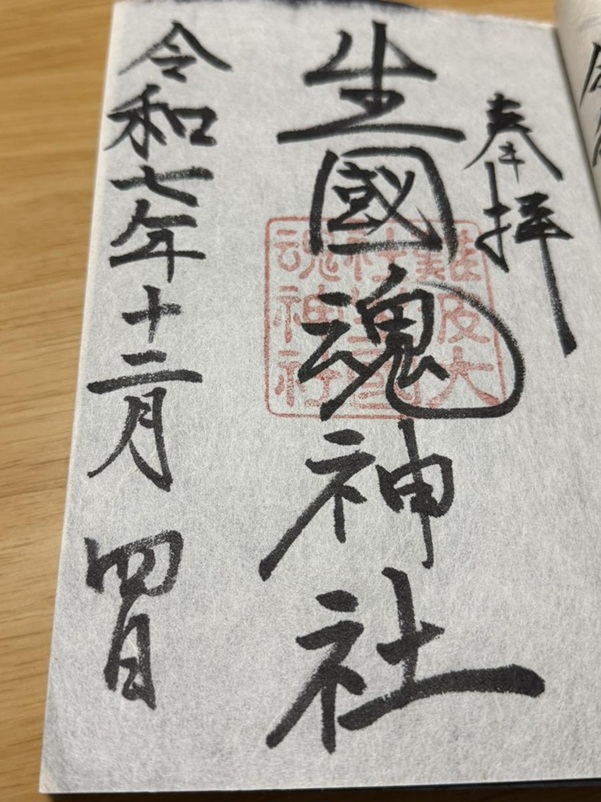 奉拝
生國魂神社
難波大
社生國
魂神社
令和七年十二月四日